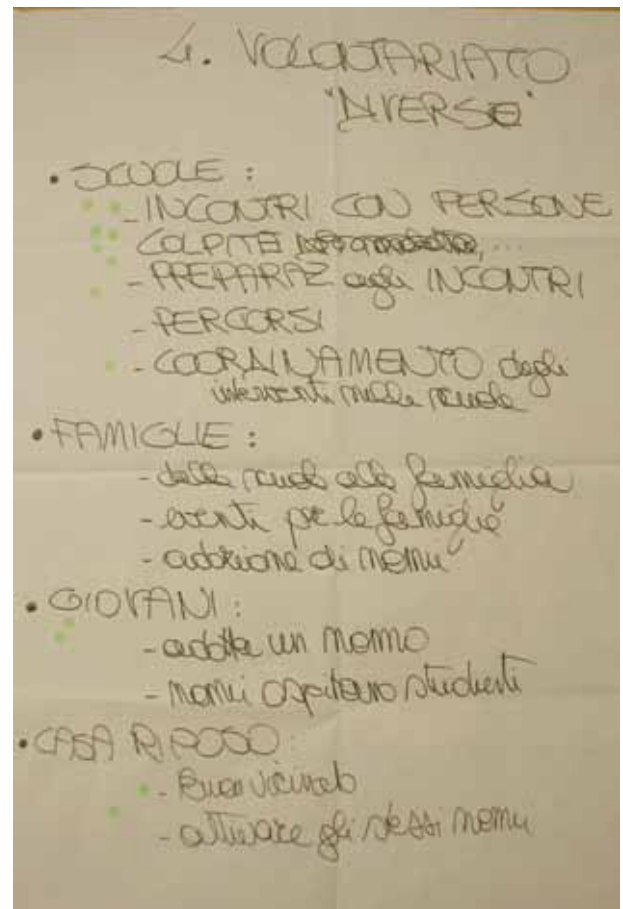 4. VOLONTARIATO
"DIVERSO"
• SCUOLE :
- INCONTRI CON PERSONE
COLPITE ...
- PREPARAZ agli INCONTRI
- PERCORSI
- COORDINAMENTO degli
interventi nelle scuole
• FAMIGLIE :
- dalla scuola alla famiglia
- eventi per le famiglie
- adozione di nonni
• GIOVANI :
- adotta un nonno
- nonni ospitano studenti
• CASA RIPOSO :
- Buon vicinato
- attivare gli stessi nonni